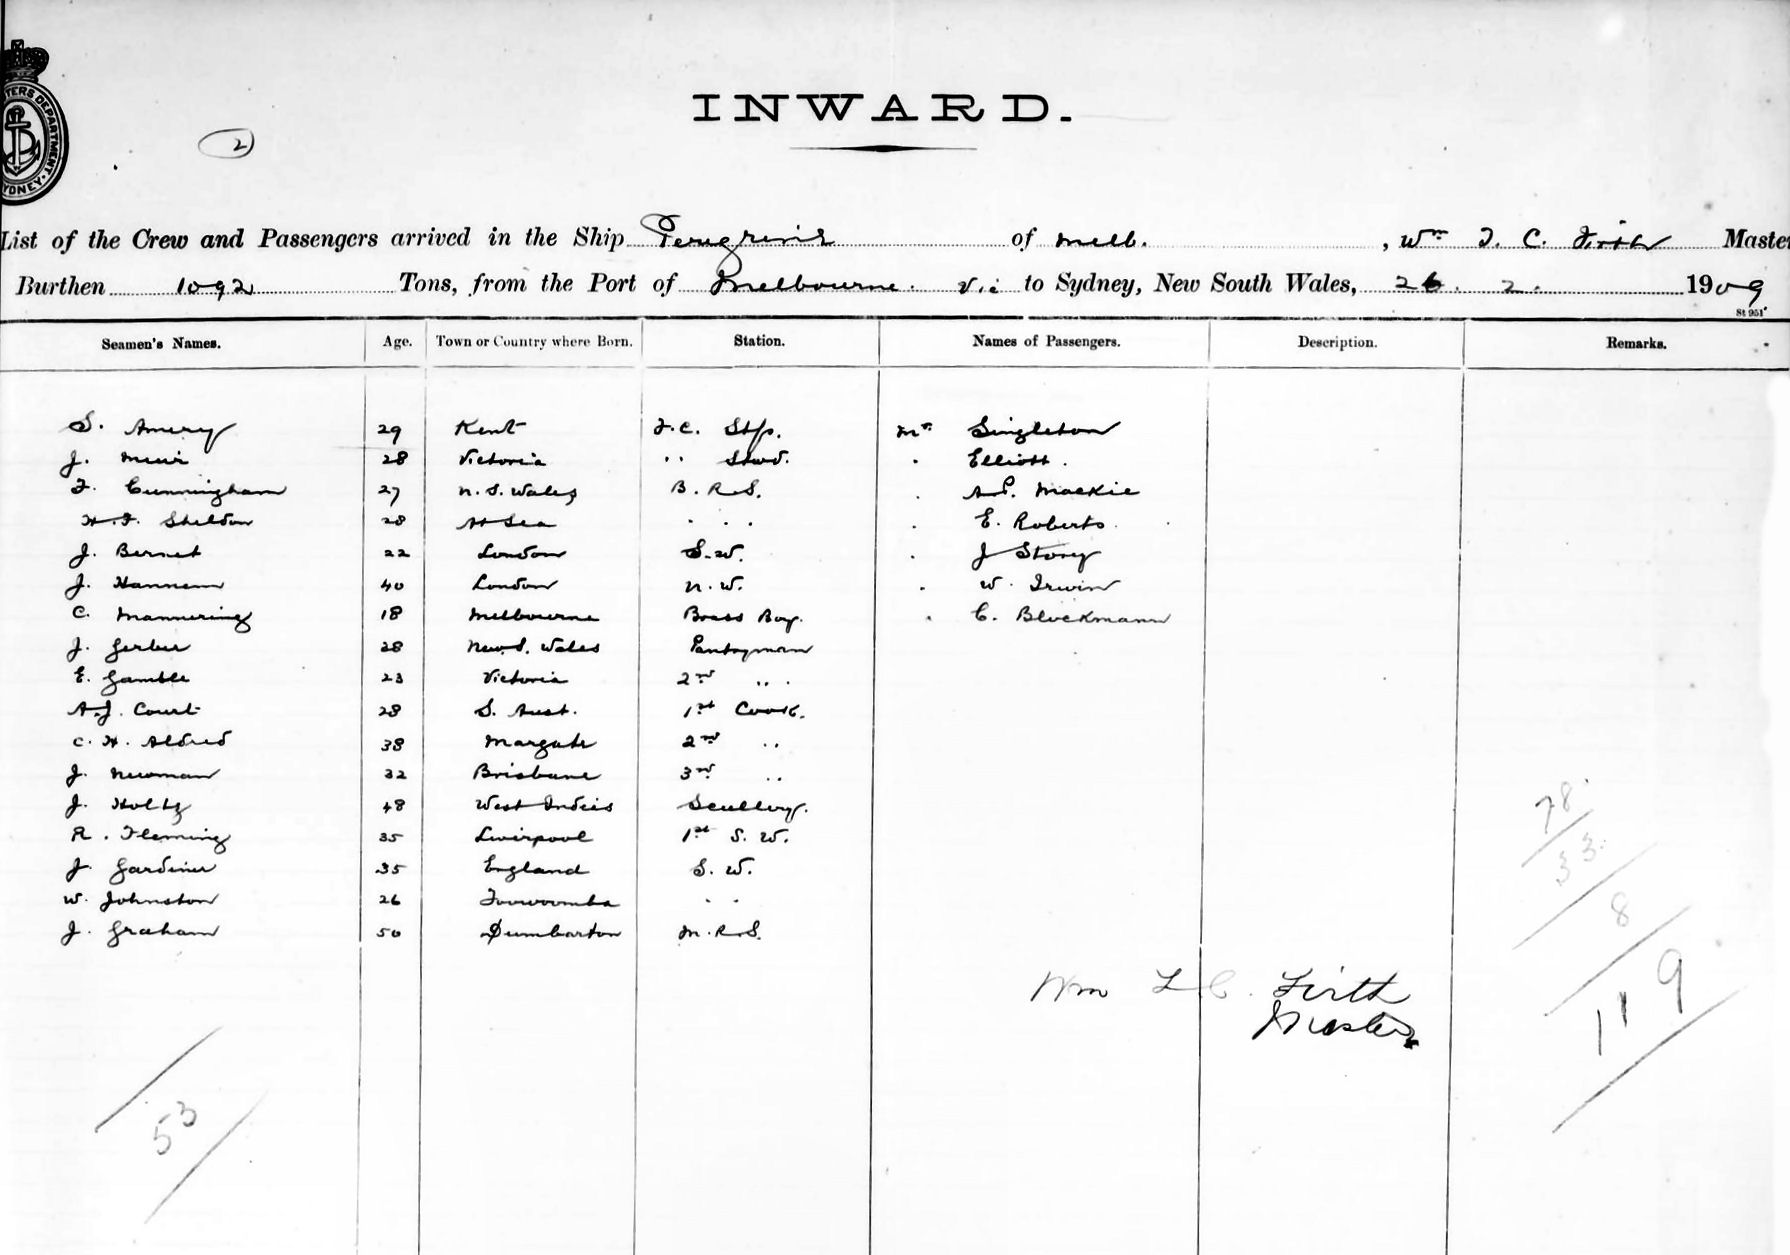 INWARD.
2
List of the Crew and Passengers arrived in the Ship Peregrine of Melb. , Wm T. C. Firth Master
Burthen 1092 Tons, from the Port of Melbourne. Vic to Sydney, New South Wales, 26. 2. 1909
St 951
Seamen's Names. Age. Town or Country where Born. Station. Names of Passengers. Description. Remarks.
S. Amery 29 Kent F.C. Stp. Mr Singleton
J. Muir 28 Victoria " Stwd. . Elliott.
F. Cunningham 27 N. S. Wales B. R. S. . A.P. Mackie
H. F. Sheldon 28 At Sea . . . . E. Roberts
J. Bernet 22 London S. W. . J Storey
J. Hannem 40 London N. W. . W. Irwin
C. Mannering 18 Melbourne Brass Boy. . C. Blockmann
J. Gerber 28 New S. Wales Pantryman
E. Gamble 23 Victoria 2nd "
A. J. Court 28 S. Aust. 1st Cook.
C. H. Aldred 38 Margate 2nd "
J. Newman 32 Brisbane 3rd "
J. Holtz 48 West Indies Scullery.
R. Fleming 35 Liverpool 1st S. W.
J. Gardiner 35 England S. W.
W. Johnston 26 Toowoomba " "
J. Graham 50 Dumbarton M. R. S.
78
33
8
119
Wm T C. Firth
Master
53